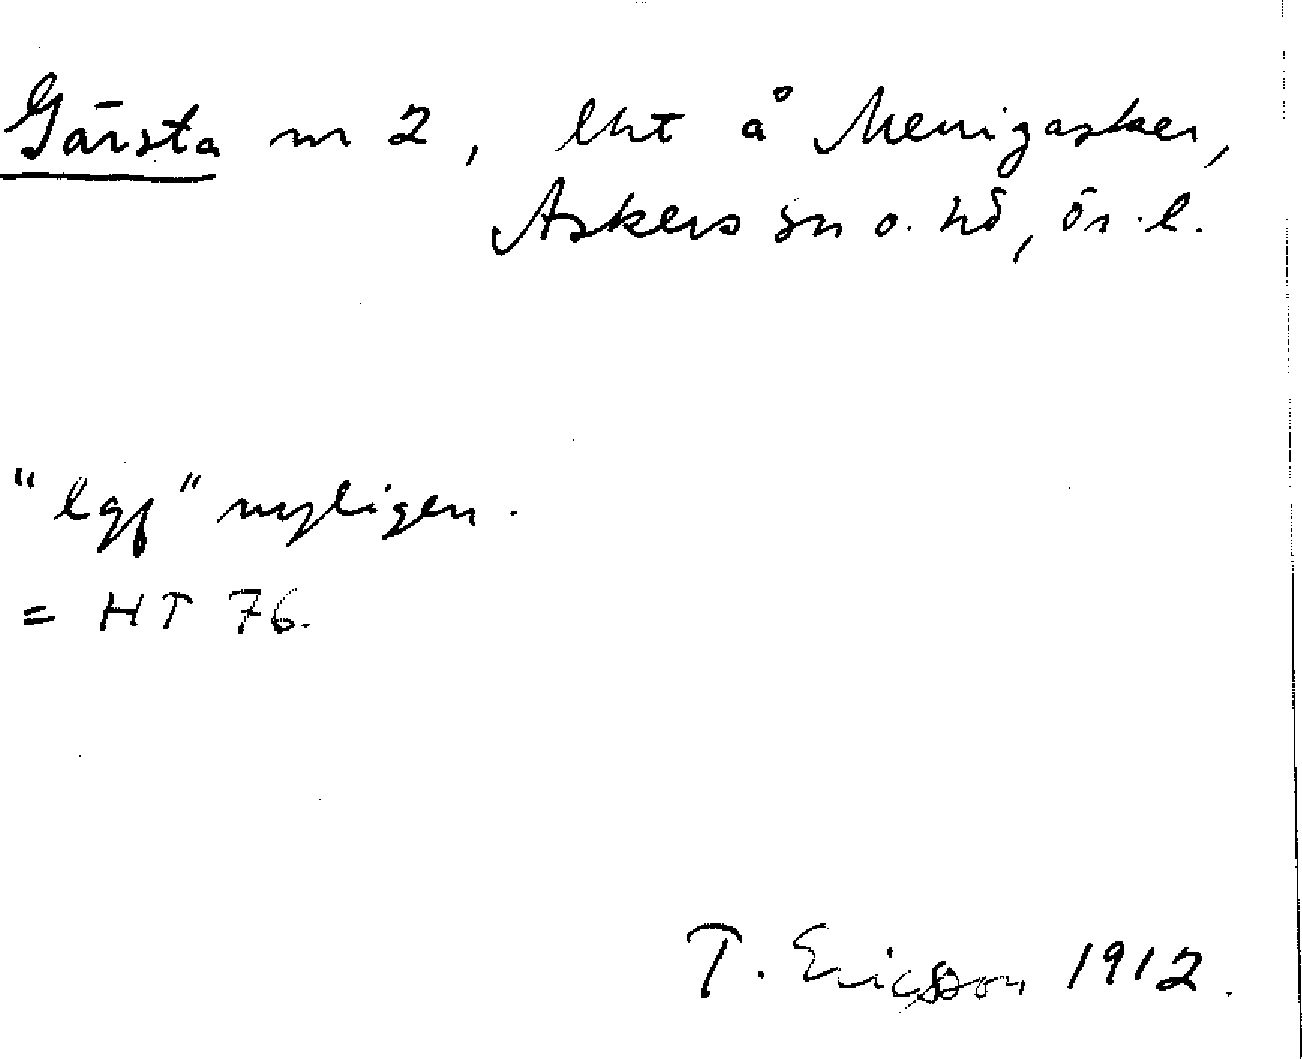 Gärsta nr 2, lht å Menigasker,
Askers sn o. hd, ör. l.
"lgf" nyligen.
= HT 76.
T. Ericsson 1912.